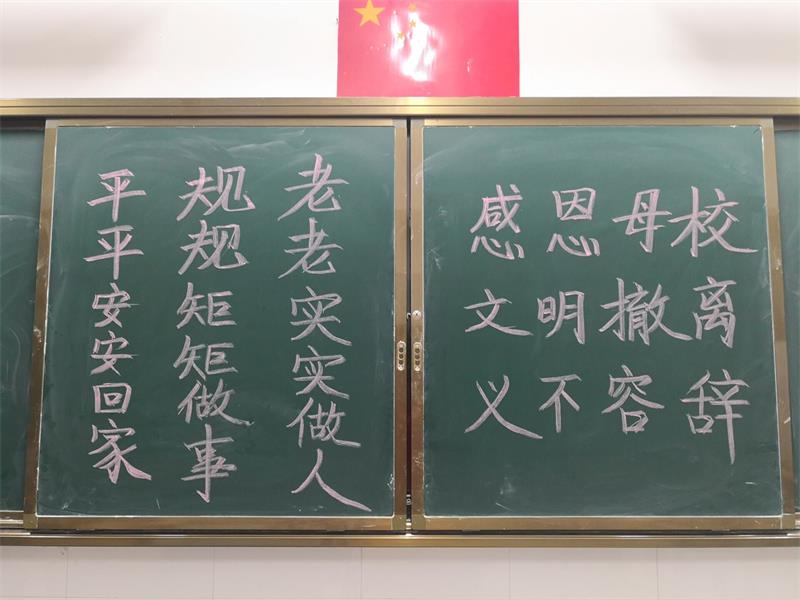 老老实实做人
规规矩矩做事
平平安安回家
感恩母校
文明撤离
义不容辞